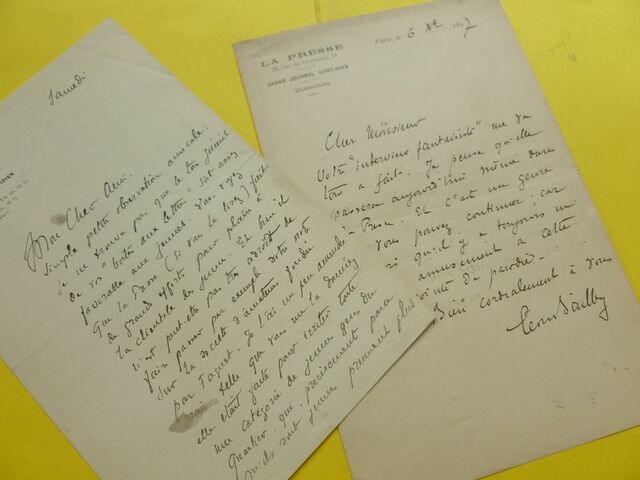 Samedi
Mon Cher Ami.
Simple petite observation amicale:
je ne trouve pas que le ton général
de vos "boîtes aux lettres" soit assez
favorable aux jeunes. Vous voyez
que la Presse (si vous la lisez) fait
de grands efforts pour plaire à
la clientèle des jeunes. Et bien il
n'est peut-être pas très adroit de
faire passer par exemple votre note
sur la société d'amateurs
par Faguet. Je l'ai un peu amendée
telle que vous me la donniez
elle était faite pour irriter toute
une catégorie de jeunes gens du
Quartier qui précisément parce
qu'ils sont jeunes prennent plus
LA PRESSE
GRAND JOURNAL QUOTIDIEN
Paris, le 6 Xbre 1897
Cher Monsieur
Votre "interview fantaisiste" me va
tout à fait. Je pense qu'elle
passera aujourd'hui même dans
Presse. Et c'est un genre
vous pouvez continuer; car
qu'il y a toujours un
amusement à cette
de parodie.
Bien cordialement à vous
Léon Bailby